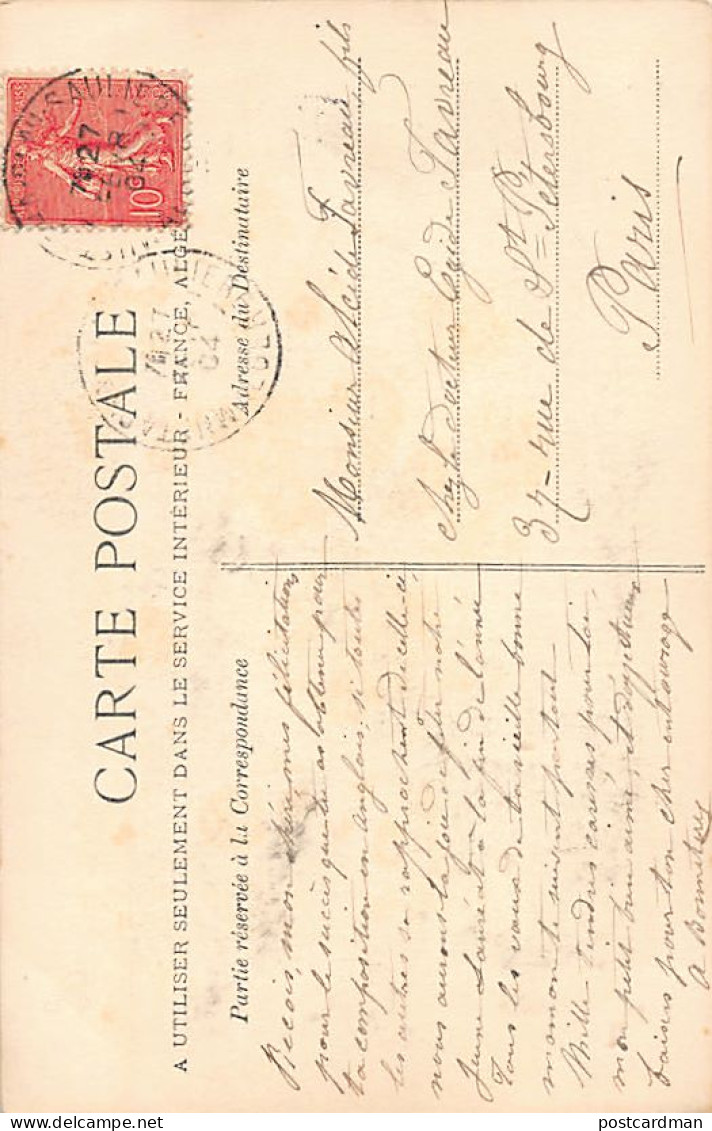 CARTE POSTALE
A UTILISER SEULEMENT DANS LE SERVICE INTÉRIEUR - FRANCE, ALGE
Partie réservée à la Correspondance
Adresse du Destinataire
Reçois, mon chéri, mes félicitations
pour le succès que tu as obtenu pour
ta composition en anglais, si toutes
les autres se rapprochent de celle-ci
nous aurons la joie de fêter notre
jeune Lauréat à la fin de l'année
Tous les vœux de ta vieille bonne
maman te suivent partout
Mille tendres caresses pour toi,
mon petit bien aimé, et d'affectueux
baisers pour ton cher entourage
Monsieur Alcide Favreau, fils
chez le docteur Egide Favreau
37 - rue de St Pétersbourg
Paris
SAULIEU
27
04
10
27
04
postcardman